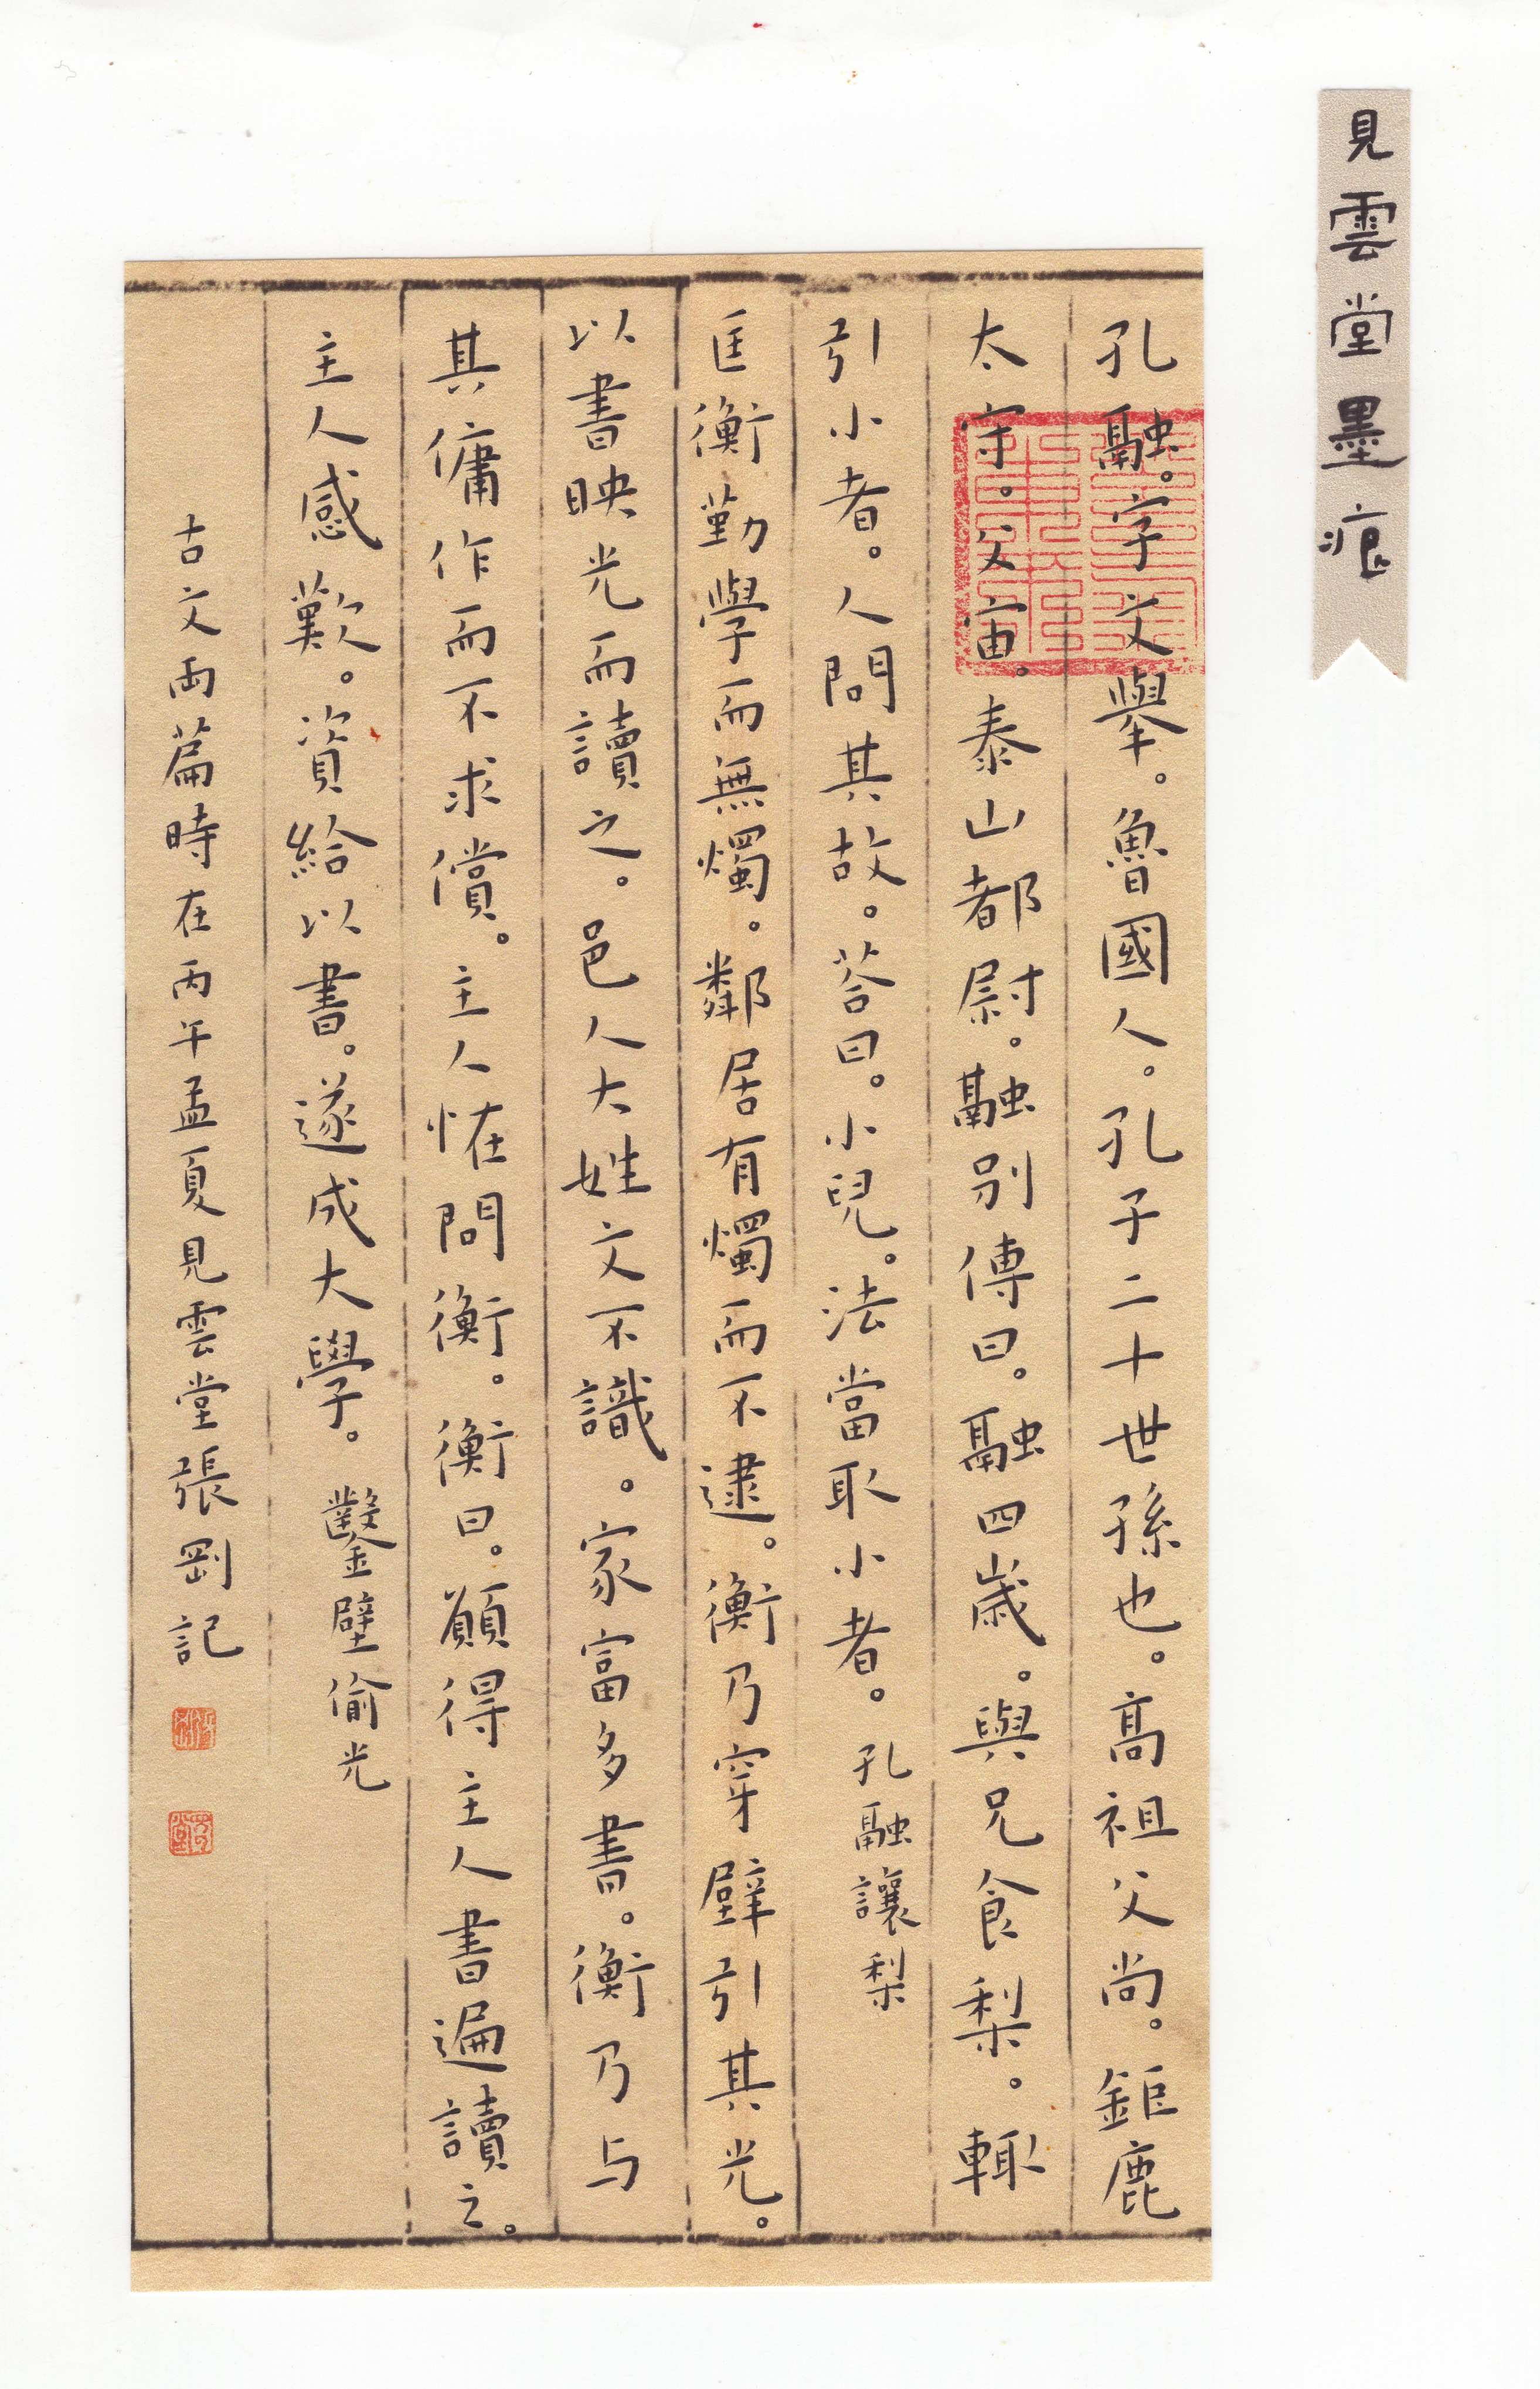 見雲堂墨痕
孔融。字文舉。魯國人。孔子二十世孫也。高祖父尚。鉅鹿
太守。父宙。泰山都尉。融別傳曰。融四歲。與兄食梨。輙
引小者。人問其故。荅曰。小兒。法當取小者。孔融讓梨
匡衡勤學而無燭。鄰居有燭而不逮。衡乃穿壁引其光。
以書映光而讀之。邑人大姓文不識。家富多書。衡乃与
其傭作而不求償。主人恠問衡。衡曰。願得主人書遍讀之。
主人感歎。資給以書。遂成大學。鑿壁偷光
古文兩篇時在丙午孟夏見雲堂張剛記